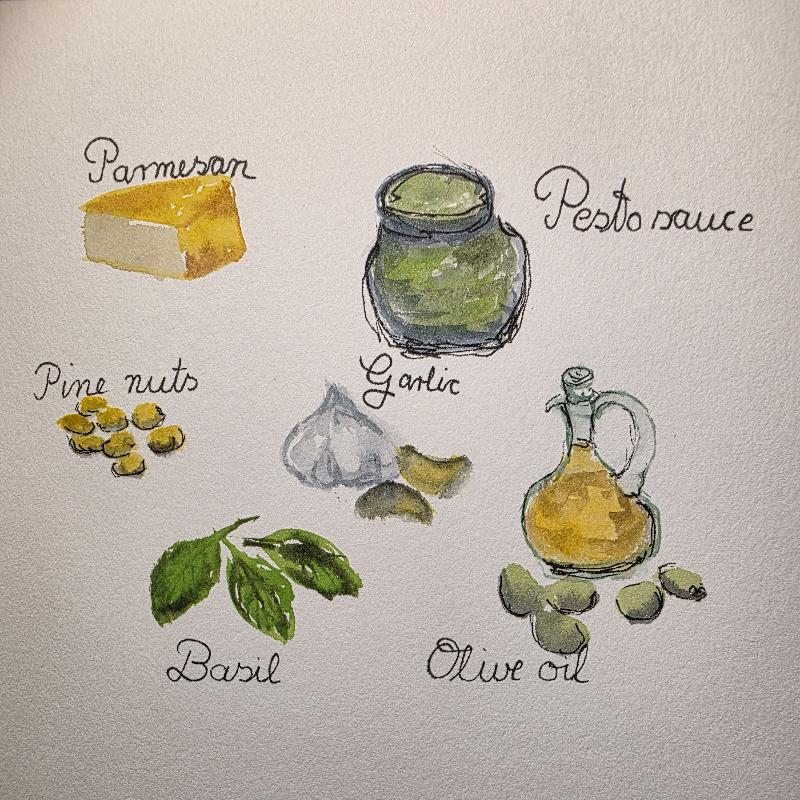 Parmesan
Pesto sauce
Pine nuts
Garlic
Basil
Olive oil